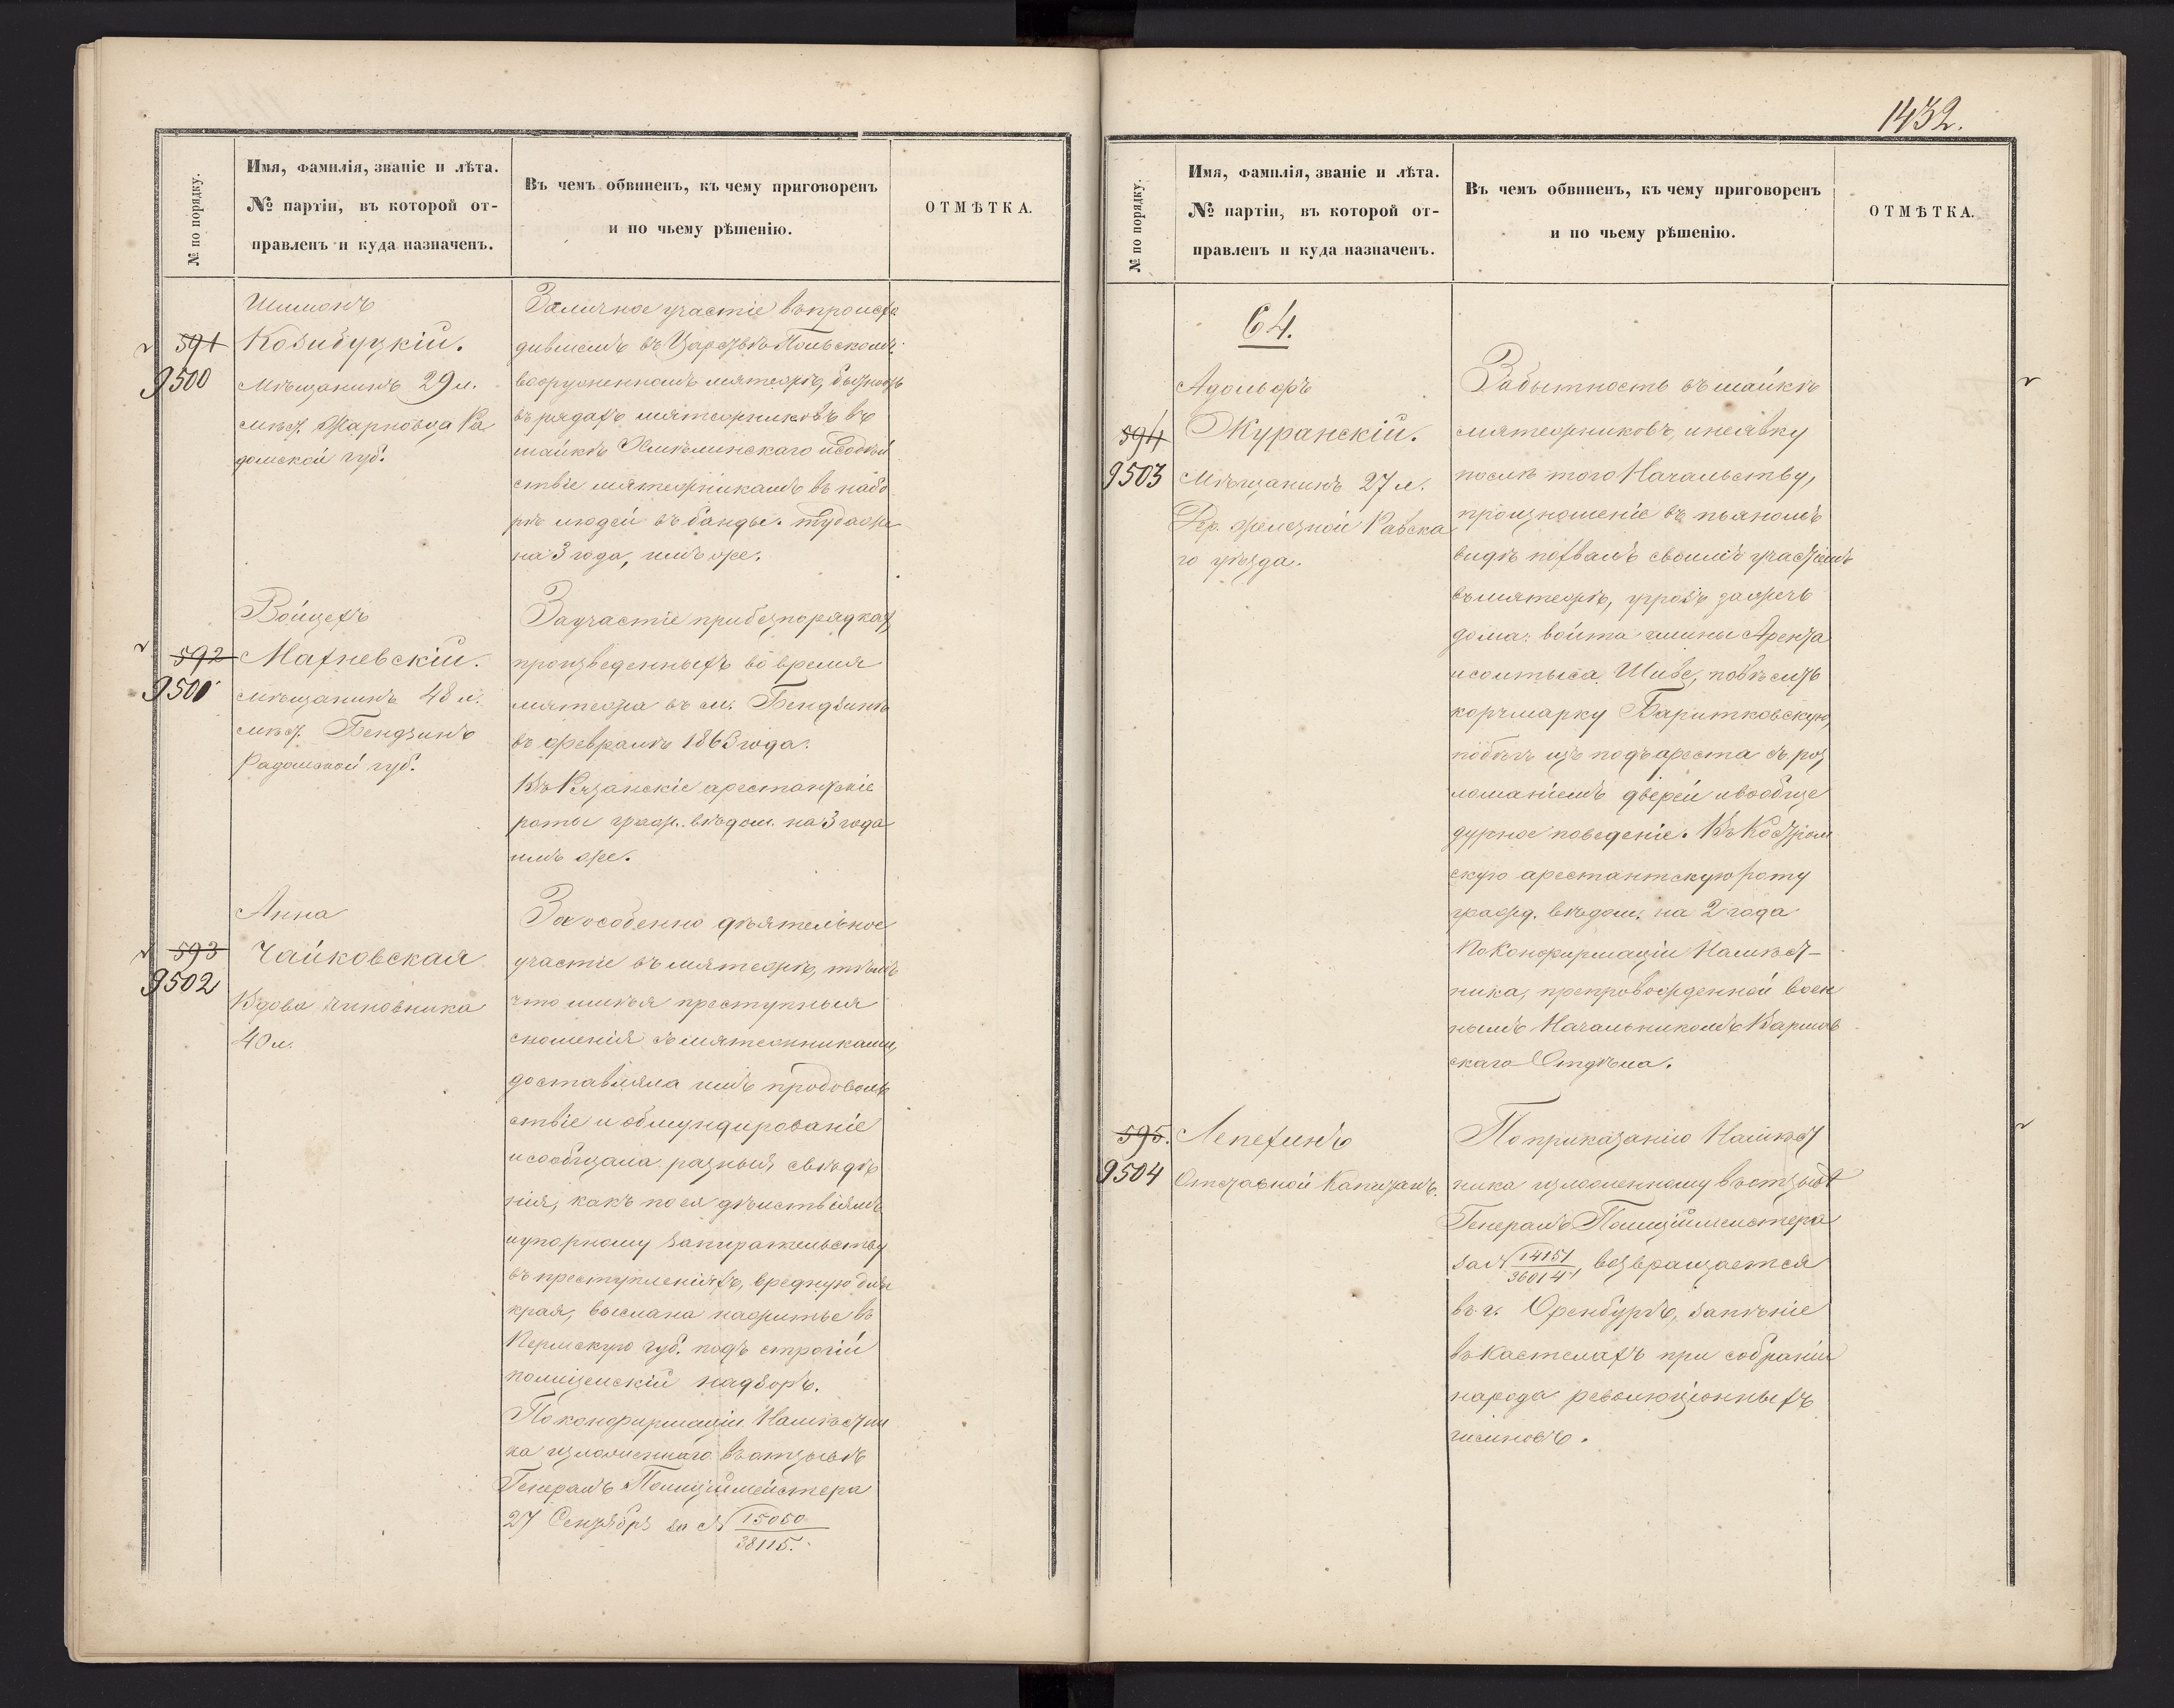 1432.
№ по порядку.
Имя, фамилія, званіе и лѣта.
№ партіи, въ которой от-
правленъ и куда назначенъ.
Въ чемъ обвиненъ, къ чему приговоренъ
и по чьему рѣшенію.
ОТМѢТКА.
591
9500
Шимонъ
Козибуцкій.
Мѣщанинъ 29 л.
мѣст. Жарновца Ра
домской губ.
За личное участіе въ происхо
дившемъ въ Царствѣ Польскомъ
вооруженномъ мятежѣ, бытность
въ рядахъ мятежниковъ въ
шайкѣ Хмѣлинскаго и содѣй
ствіе мятежникамъ въ набо
рѣ людей въ банды. Туда же
на 3 года, имъ же.
592
9501
Войцехъ
Махневскій.
мѣщанинъ 48 л.
мѣст. Бендзинъ
Радомской губ.
За участіе при безпорядкахъ,
произведенныхъ во время
мятежа въ м. Бендзинѣ
въ февралѣ 1863 года.
Въ Рязанскіе арестантскіе
роты гражд. вѣдом. на 3 года
имъ же.
593
9502
Анна
Чайковская
Вдова чиновника
40 л.
За особенно дѣятельное
участіе въ мятежѣ, тѣмъ
что имѣя преступныя
сношенія съ мятежниками,
доставляла имъ продоволь
ствіе и обмундированіе
и сообщала разныя свѣдѣ
нія, какъ по ея дѣйствіямъ
и упорному запирательству
въ преступленіяхъ, вредную для
края, выслана на житье въ
Пермскую губ. подъ строгій
полицейскій надзоръ.
По конфирмаціи Намѣстни
ка изложеннаго въ отзывѣ
Генералъ Полицiймейстера
27 Сентября за № 15060
38115.
№ по порядку.
Имя, фамилія, званіе и лѣта.
№ партіи, въ которой от-
правленъ и куда назначенъ.
Въ чемъ обвиненъ, къ чему приговоренъ
и по чьему рѣшенію.
ОТМѢТКА.
64.
594
9503
Адольфъ
Журанскій.
Мѣщанинъ 27 л.
Дер. Железной Равска
го уѣзда.
За бытность въ шайкѣ
мятежниковъ, и неявку
послѣ того Начальству,
произношеніе въ пьяномъ
видѣ похвалъ своимъ участіемъ
въ мятежѣ, угрозъ зажечь
дома: войта гмины Арента
и солтыса Шибе, повѣсить
корчмарку Баритковскую,
побѣгъ изъ подъ ареста съ роз
ломаніемъ дверей и вообще
дурное поведеніе. Въ Костром
скую арестантскую роту
гражд. вѣдом. на 2 года
По Конфирмаціи Намѣст-
ника, препровожденной воен
нымъ Начальникомъ Варшав
скаго Отдѣла.
595.
9504
Лепехинъ
Отставной Капитанъ.
По приказанію Намѣст
ника изложенному въ отзывѣ
Генералъ Полицiймейстера
за № 14151
36014 возвращается
въ г. Оренбургъ, за пѣніе
въ костелахъ при собраніи
народа революціонныхъ
гимновъ.